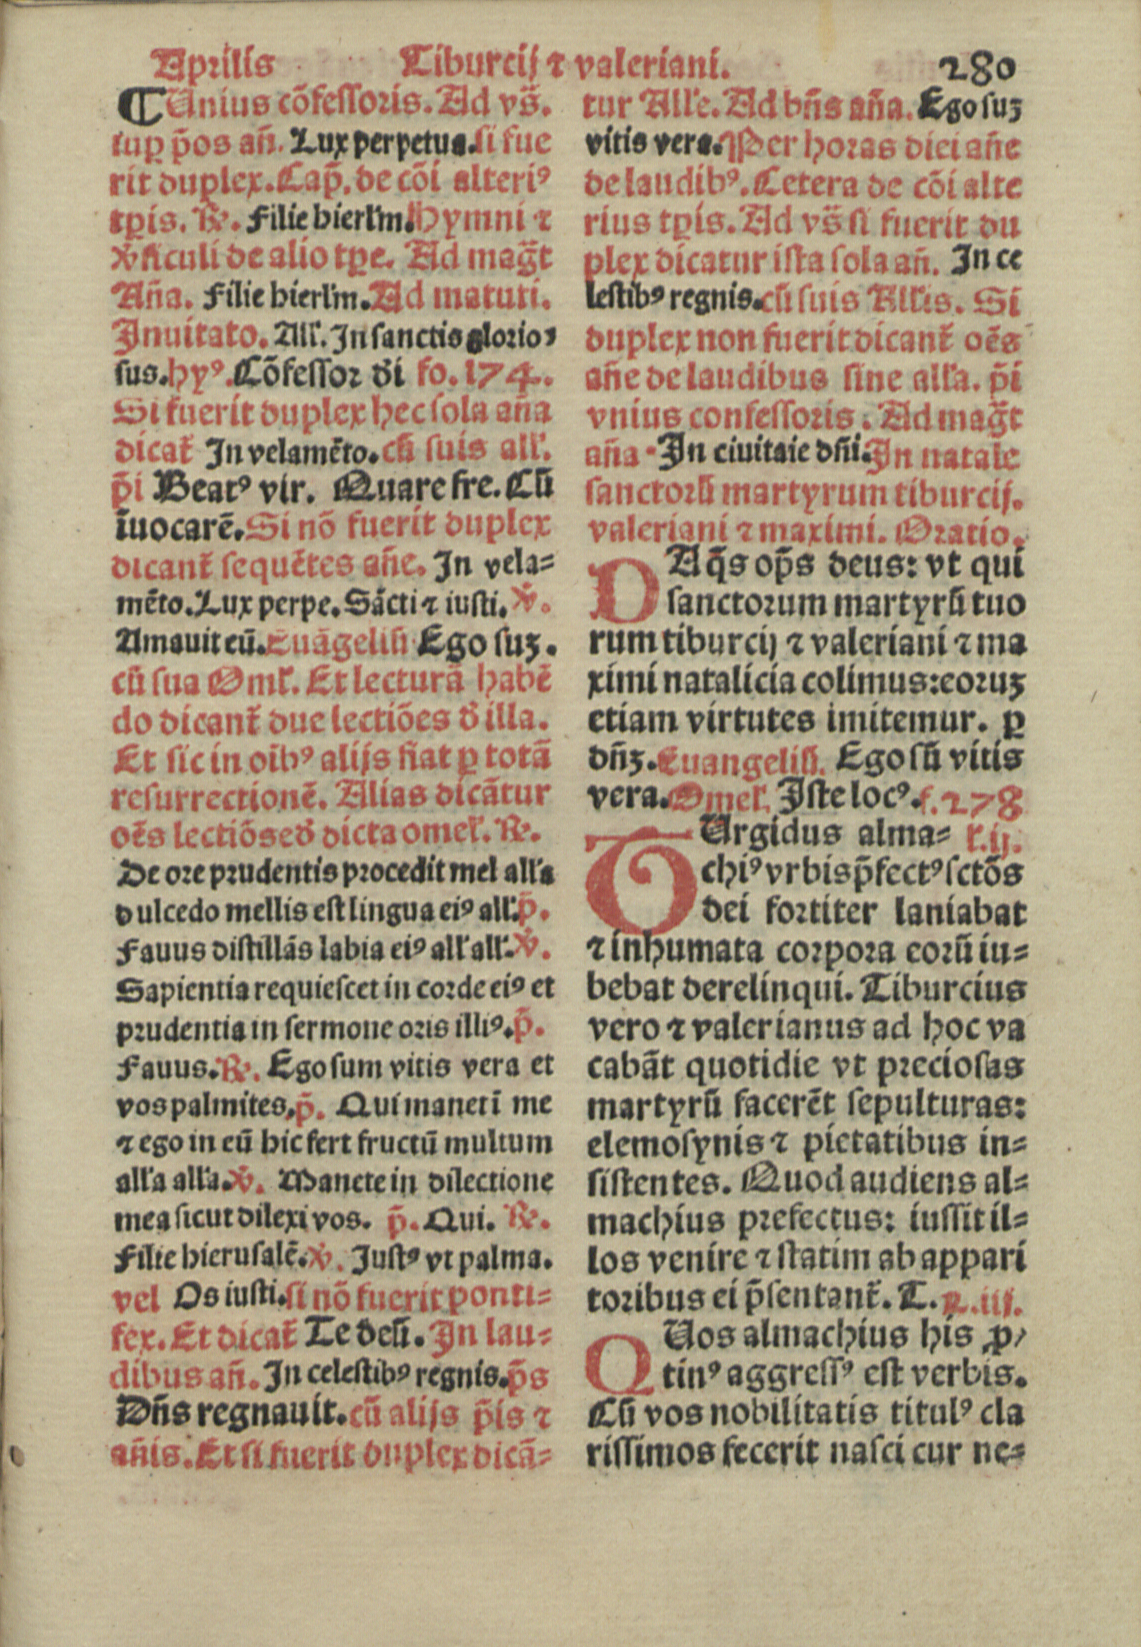 Aprilis Tiburcij ⁊ valeriani. 280
¶ Unius cõfessoris. Ad vs̃.
tuꝑ p̃os añ. Lux perpetua. si fue
rit duplex. Cap̃. de cõi alteriꝰ
tp̃is. ℟. Filie hierl'm. Hymni ⁊
v̾siculi de alio tp̃e. Ad mag̃t
Aña. Filie hierl'm. Ad matuti.
Inuitato. All'. In sanctis glorio-
sus. hyꝰ. Cõfessor d̾i fo. 174.
Si fuerit duplex hec sola aña
dicat̃ In velamẽto. cũ suis all'.
p̃i Beatꝰ vir. Quare fre. Cũ
ĩuocarẽ. Si nõ fuerit duplex
dicant̃ sequẽtes añe. In vela-
mẽto. Lux perpe. Sãcti ⁊ iusti. ℣.
Amauit eũ. Euãgeliũ Ego suꝫ.
cũ sua Omel'. Et lecturã habẽ
do dicant̃ due lectiões d̾ illa.
Et sic in oĩbꝰ alijs fiat ꝑ totã
resurrectionẽ. Alias dicãtur
oẽs lectiões d̾ dicta omel'. ℟.
De ore prudentis procedit mel all'a
dulcedo mellis est lingua eiꝰ all'. p̃.
Fauus distillãs labia eiꝰ all' all'. ℣.
Sapientia requiescet in corde eiꝰ et
prudentia in sermone oris illiꝰ. p̃.
Fauus. ℟. Ego sum vitis vera et
vos palmites, p̃. Qui manet ĩ me
⁊ ego in eũ hic fert fructũ multum
all'a all'a. ℣. Manete in dilectione
mea sicut dilexi vos. p̃. Qui. ℟.
Filie hierusalẽ. ℣. Justꝰ vt palma.
vel Os iusti. si nõ fuerit ponti-
fex. Et dicat̃ Te deũ. In lau-
dibus añ. In celestibꝰ regnis. p̃s
Dñs regnauit. cũ alijs p̃is ⁊
añis. Et si fuerit duplex dicã-
tur All'e. Ad bñs aña. Ego suꝫ
vitis vera. Per horas diei añe
de laudibꝰ. Cetera de cõi alte
rius tp̃is. Ad vs̃ si fuerit du
plex dicatur ista sola añ. In ce
lestibꝰ regnis. cũ suis All'is. Si
duplex non fuerit dicant̃ oẽs
añe de laudibus sine all'a. p̃i
vnius confessoris. Ad mag̃t
aña. In ciuitate dñi. In natale
sanctorũ martyrum tiburcij.
valeriani ⁊ maximi. Oratio.
DA q̃s op̃s deus: vt qui
sanctorum martyrũ tuo
rum tiburcij ⁊ valeriani ⁊ ma
ximi natalicia colimus: eoruꝫ
etiam virtutes imitemur. ꝑ
dñꝫ. Euangeliũ. Ego sũ vitis
vera. Omel'. Iste locꝰ. f. 278
TUrgidus alma- l'. ij.
chiꝰ vrbis p̃fectꝰ sctõs
dei fortiter laniabat
⁊ inhumata corpora eorũ iu-
bebat derelinqui. Tiburcius
vero ⁊ valerianus ad hoc va
cabãt quotidie vt preciosas
martyrũ facerẽt sepulturas:
elemosynis ⁊ pietatibus in-
sistentes. Quod audiens al-
machius prefectus: iussit il-
los venire ⁊ statim ab appari
toribus ei p̃sentant̃. T. l'. iij.
QUos almachius his ꝓ-
tinꝰ aggressꝰ est verbis.
Cũ vos nobilitatis titulꝰ cla
rissimos fecerit nasci cur ne-